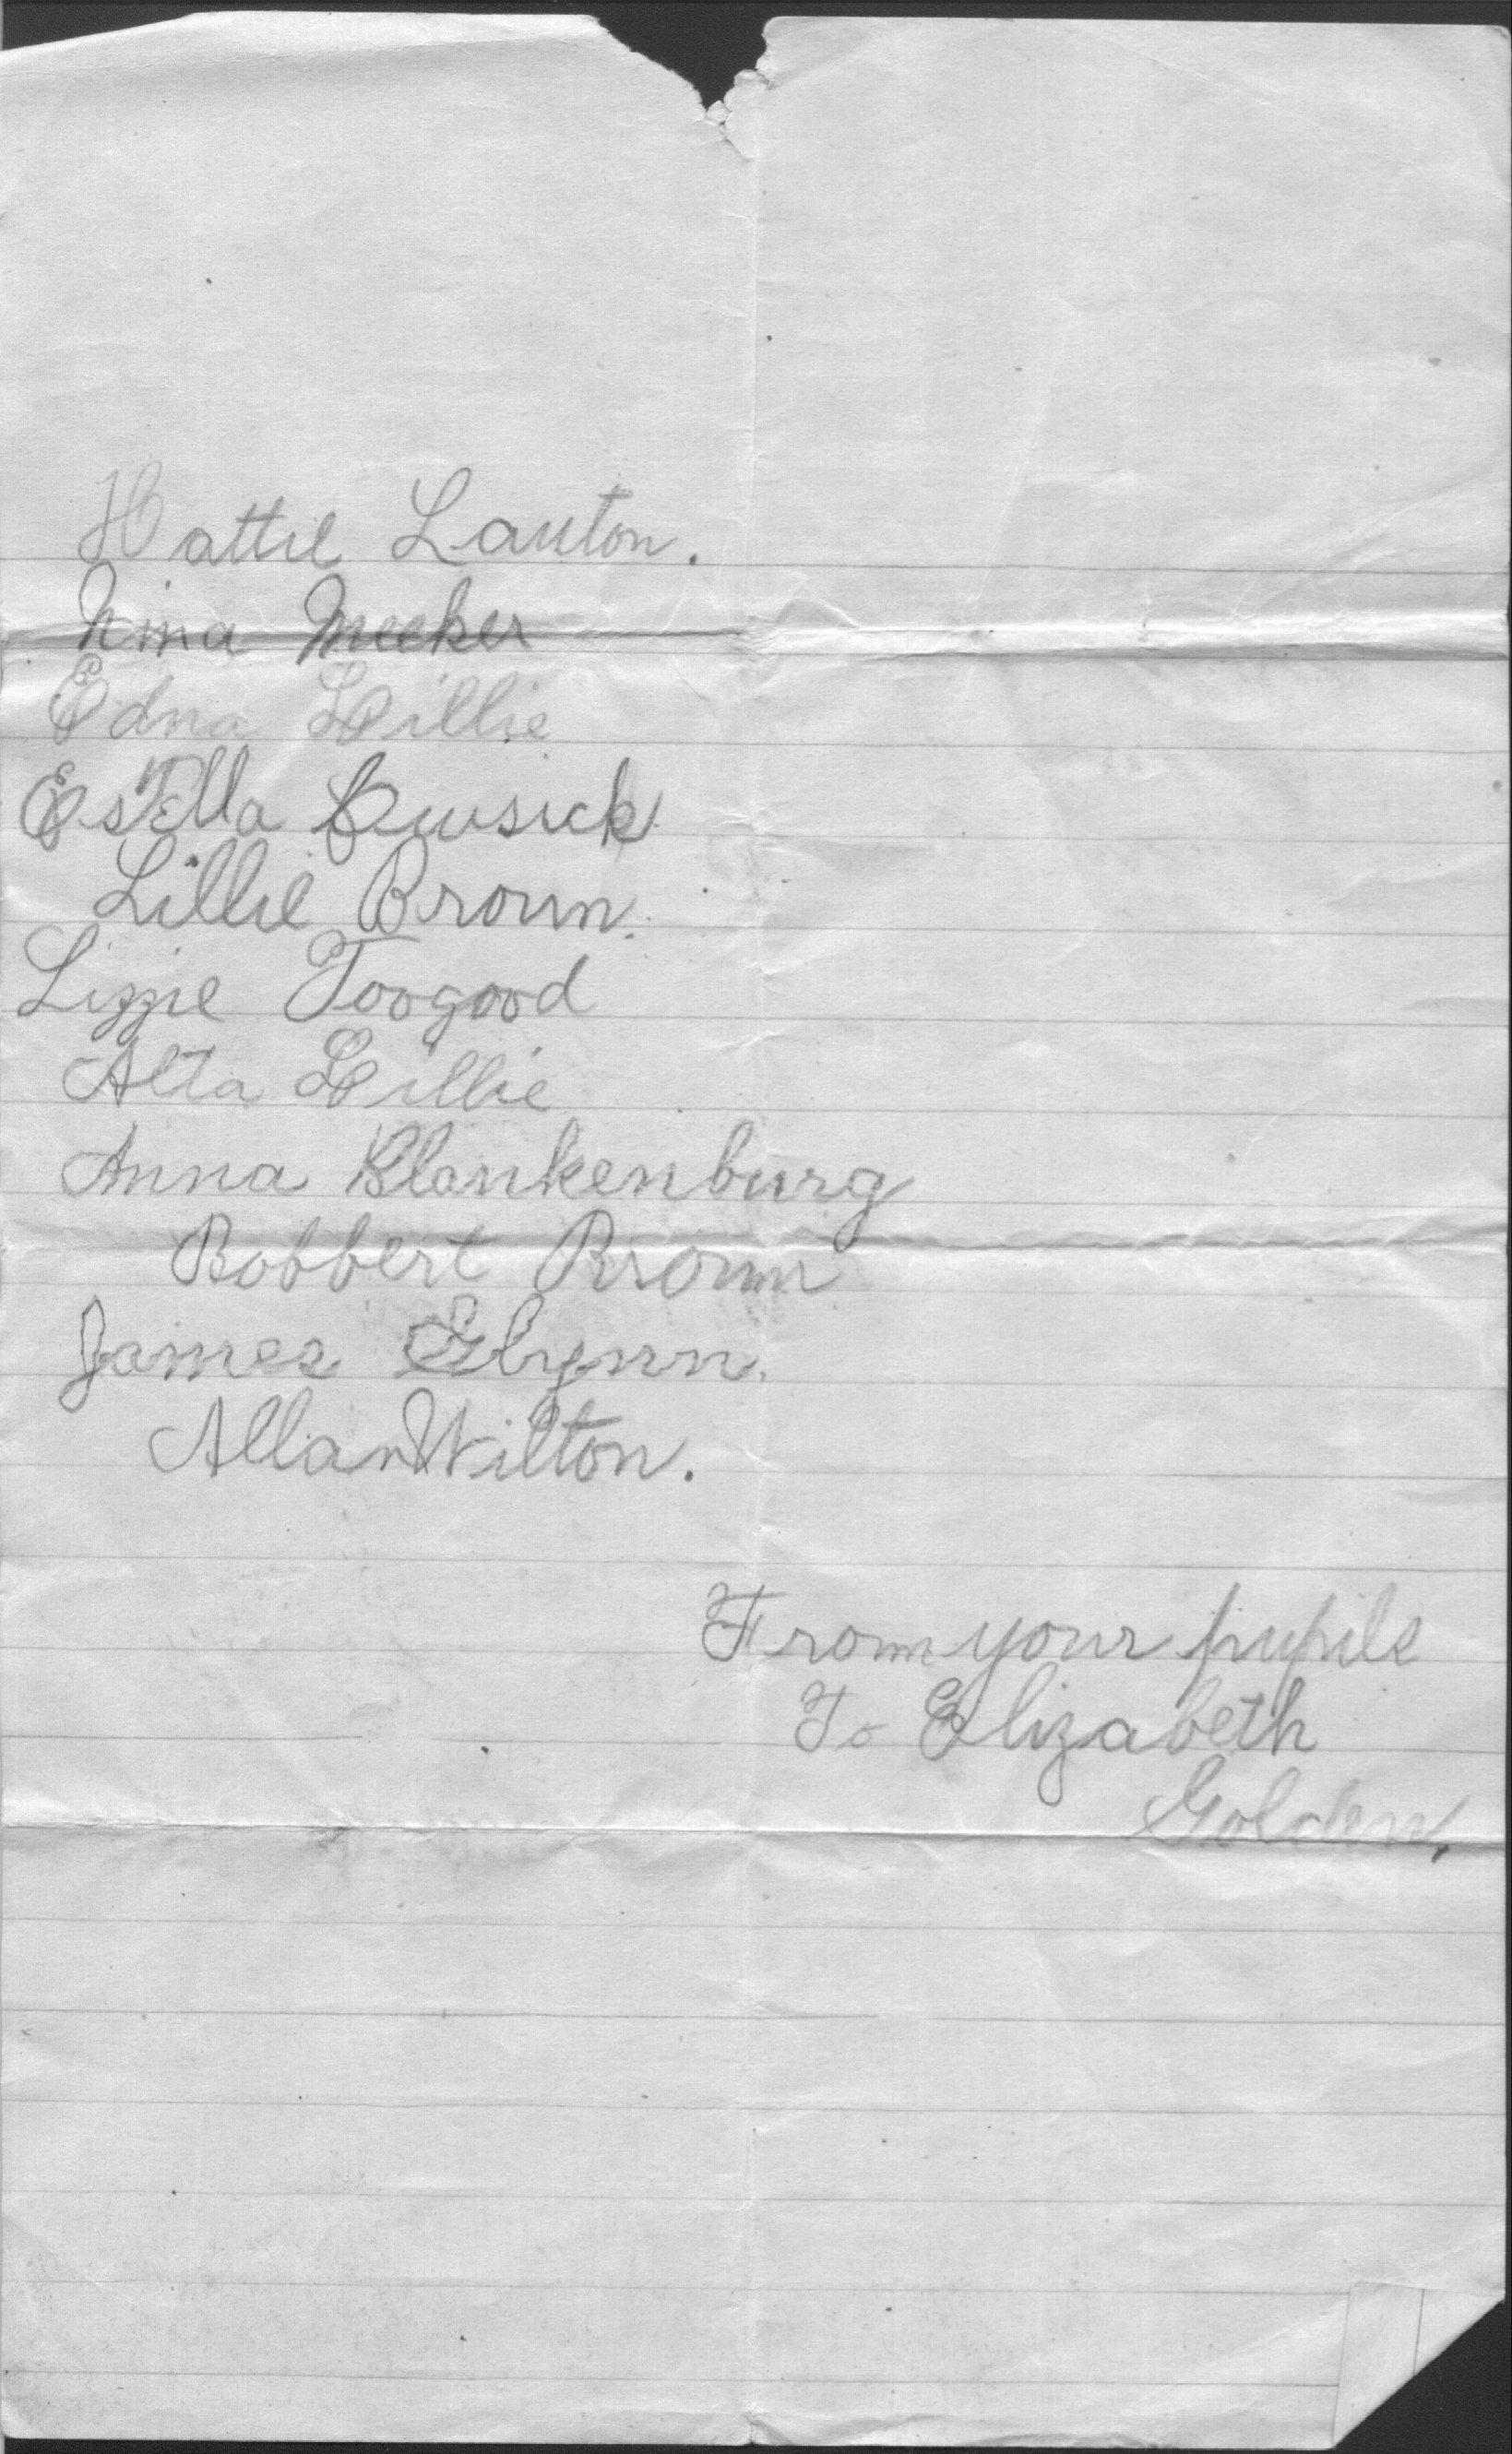 Hattie Lauton.
Nina Meeker
Edna Lillie
Estella Cusick
Lillie Brown.
Lizzie Toogood
Alta Lillie
Anna Blankenburg
Bobbert Brown
James Glynn.
Allan Wilton.
From your pupils
To Elizabeth
Golden.